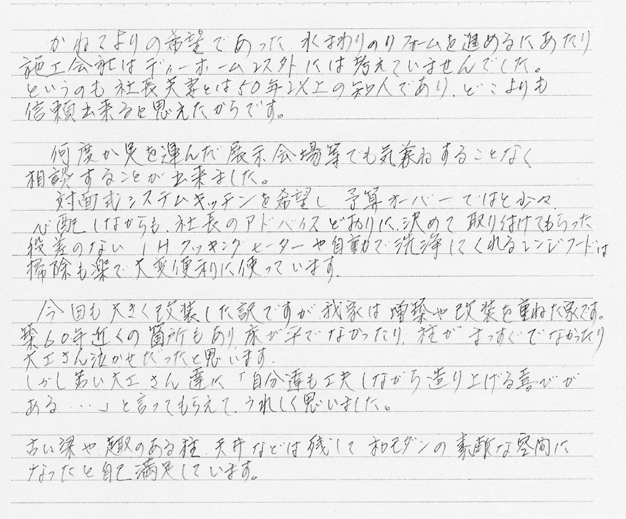 かねてよりの希望であった 水まわりのリフォームを進めるにあたり
施工会社はディーホームス以外には考えていませんでした。
というのも社長夫妻とは50年以上の知人であり、どこよりも
信頼出来ると思えたからです。
何度か足を運んだ展示会場等でも気兼ねすることなく
相談することが出来ました。
対面式システムキッチンを希望し 予算オーバーではと少々、
心配しながらも、社長のアドバイスどおりに決めて取り付けてもらった
段差のない IHクッキングヒーターや自動で洗浄してくれるレンジフードは
掃除も楽で大変便利に使っています。
今回も大きく改装した訳ですが我家は増築や改装を重ねた家です。
築60年近くの箇所もあり、床が平でなかったり、柱がまっすぐでなかったり
大工さん泣かせだったと思います。
しかし若い大工さん達に「自分達も工夫しながら造り上げる喜びが
ある・・・・」と言ってもらえて、うれしく思いました。
古い梁や趣のある柱、天井などは残して和モダンの素敵な空間に
なったと自己満足しています。